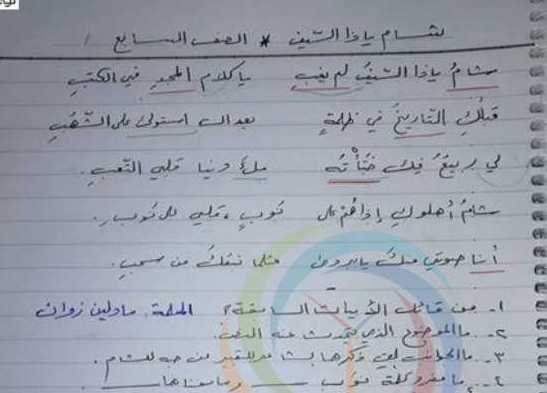 شام ياذا السّيف * الصف السابع
شامُ ياذا السّيفُ لم يغبِ ياكلام المجدِ في الكتبِ
قبلكِ التاريخُ في ظلمةٍ بعدكِ استولى على الشّهبِ
لي ربيعٌ فيكِ خبّأتُهُ ملءَ دنيا قلبي التّعبِ.
شامُ أهلوكِ إذا هُمْ على نُوَبٍ، قلبي على نُوَبِ.
أنا صوتي منكِ يابردى مثلما نبعُكَ من سحبي.
١- من قائل الأبيات السابقة؟ المعلمة: مادلين زوان
٢- ما الموضوع الذي يتحدث عنه النص.
٣- ما الجوانب التي ذكرها الشاعر للتعبير عن حبه للشام.
٤- ما مفرد كلمة نوب ــــ وما معناها ــــ.